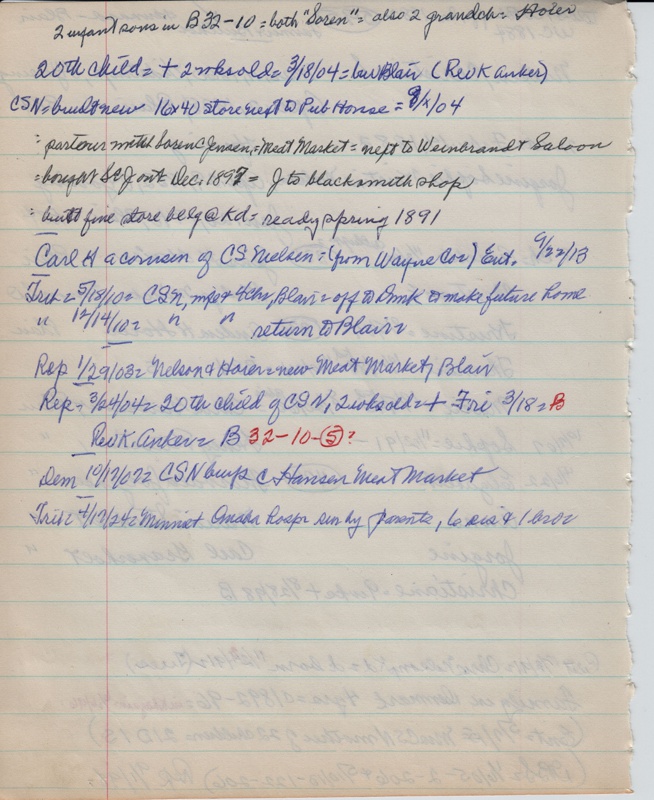 2 infant sons in B 32-10 = both "Soren" = also 2 grandch = Hoier
20th child = + 2 wks old = 3/18/04 = bur Blair (Rev K. Anker)
CSN = build new 16x40 store next to Pub House = 9/x/04
= partner with Soren C Jensen, = Meat Market = next to Weinbrandt Saloon
= bought SCJ out Dec. 1897 = J to blacksmith shop
= built fine store bldg @ Kd = ready spring 1891
Carl H a cousin of CS Nielsen = (from Wayne Co =) Ent. 9/22/13
Trib = 5/18/10 = CSN, wife & 4 chr, Blair = off to Dmk to make future home
" 12/14/10 = " " return to Blair =
Rep 1/29/03 = Nelson & Hoier = new Meat Market, Blair
Rep = 3/24/04 = 20th child of CSN, 2 wks old = + Fri 3/18 = B
Rev K. Anker = B 32-10-(5)?
Dem 10/17/07 = CSN buys C Hansen Meat Market
Trib 4/17/24 = Omaha Hosp, sur by parents, 6 sis & 1 bro =